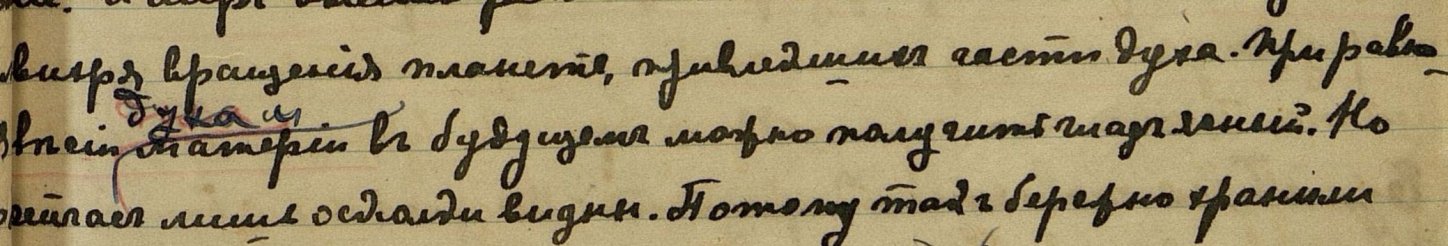 вихря вращенія планетъ, привлекшихъ части духа. При равно-
вѣсіи духа и матеріи въ будущемъ можно получить гладь ясный. Но
сейчасъ лишь осколки видны. Потому такъ бережно хранили